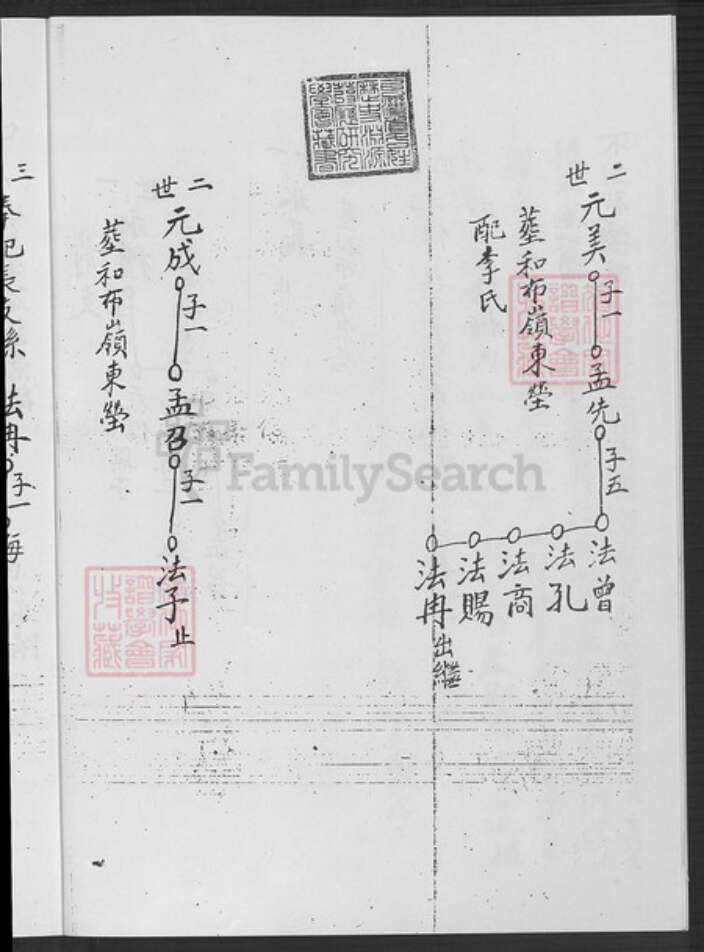 二世
元美
子一
孟先
子五
法曾
法孔
法商
法賜
法冉出繼
葬和布嶺東塋
配李氏
二世
元成
子一
孟召
子一
法子止
葬和布嶺東塋
三
法冉
子一
海
FamilySearch